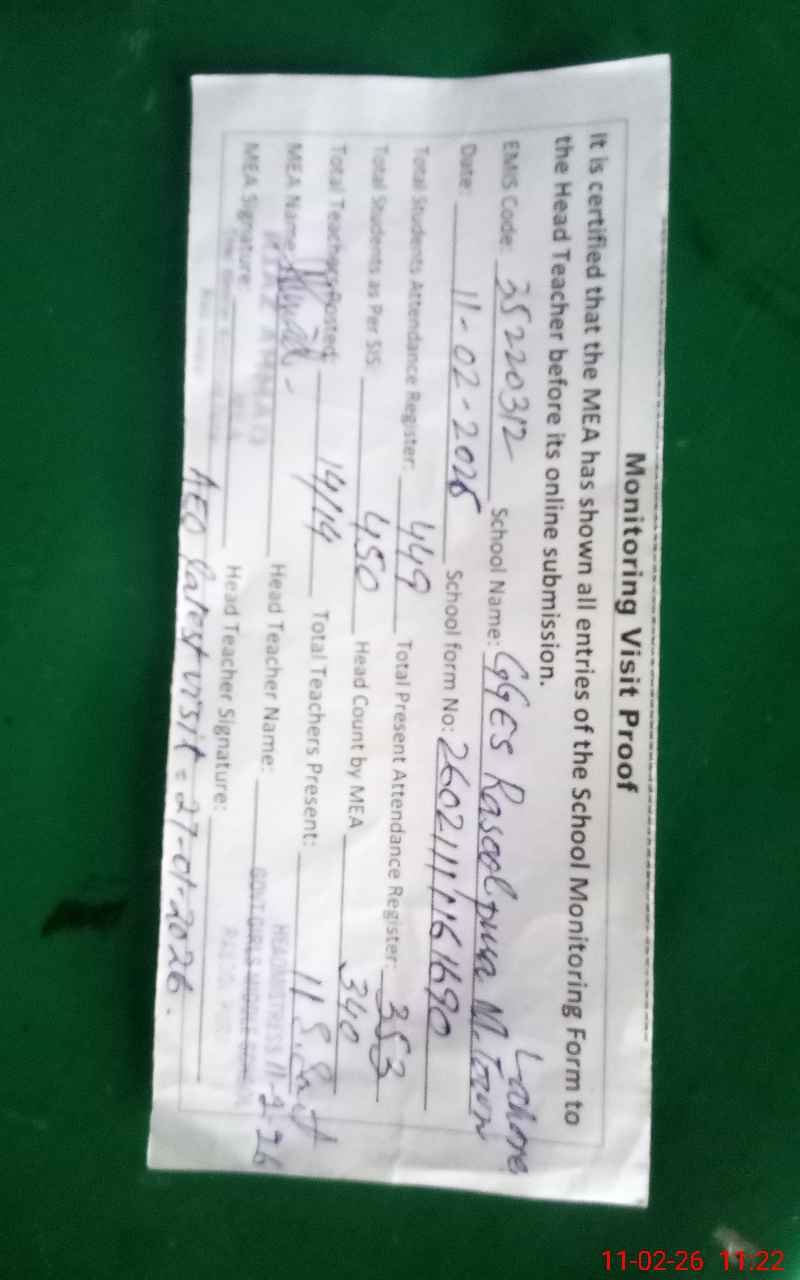 Monitoring Visit Proof
It is certified that the MEA has shown all entries of the School Monitoring Form to
the Head Teacher before its online submission.
Lahore
EMIS Code: 35220312 School Name: GGES Rasoolpura M. Town
Date: 11-02-2026 School form No: 2602111161690
Total Students Attendance Register: 449 Total Present Attendance Register: 353
Total Students as Per SIS: 450 Head Count by MEA 340
Total Teachers Posted: 14/14 Total Teachers Present: 11
MEA Name: Head Teacher Name:
HEADMISTRESS 11-2-26
GOVT GIRLS MIDDLE
MEA Signature: Head Teacher Signature:
AEO latest visit = 27-01-2026.
11-02-26 11:22